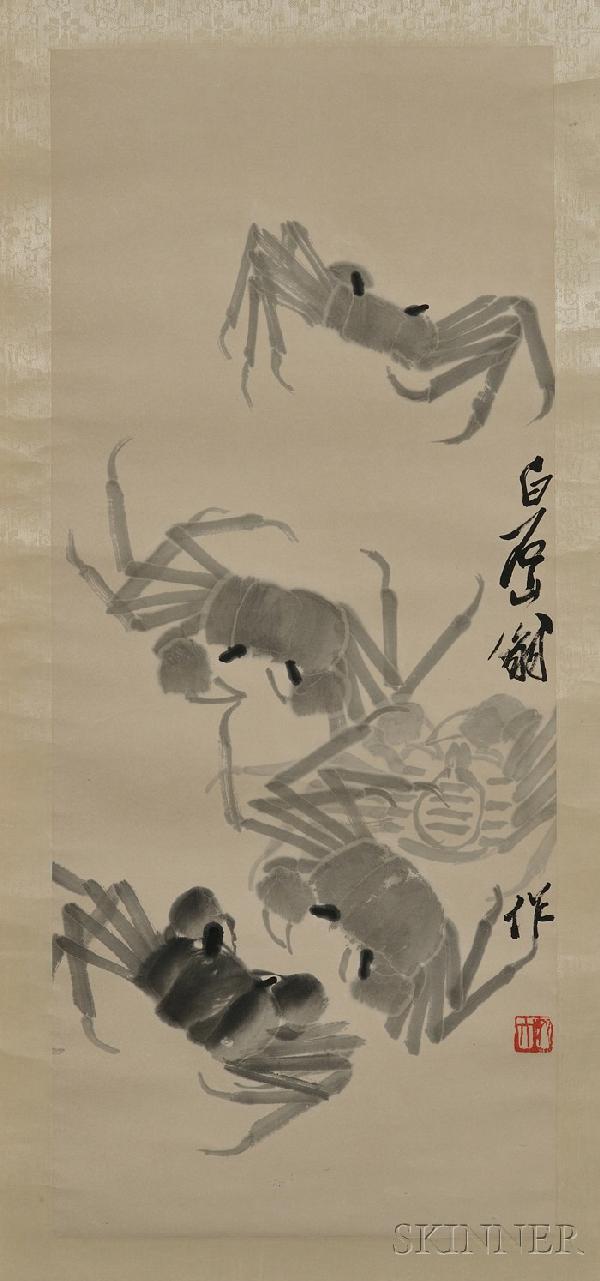 白石山翁
作
SKINNER